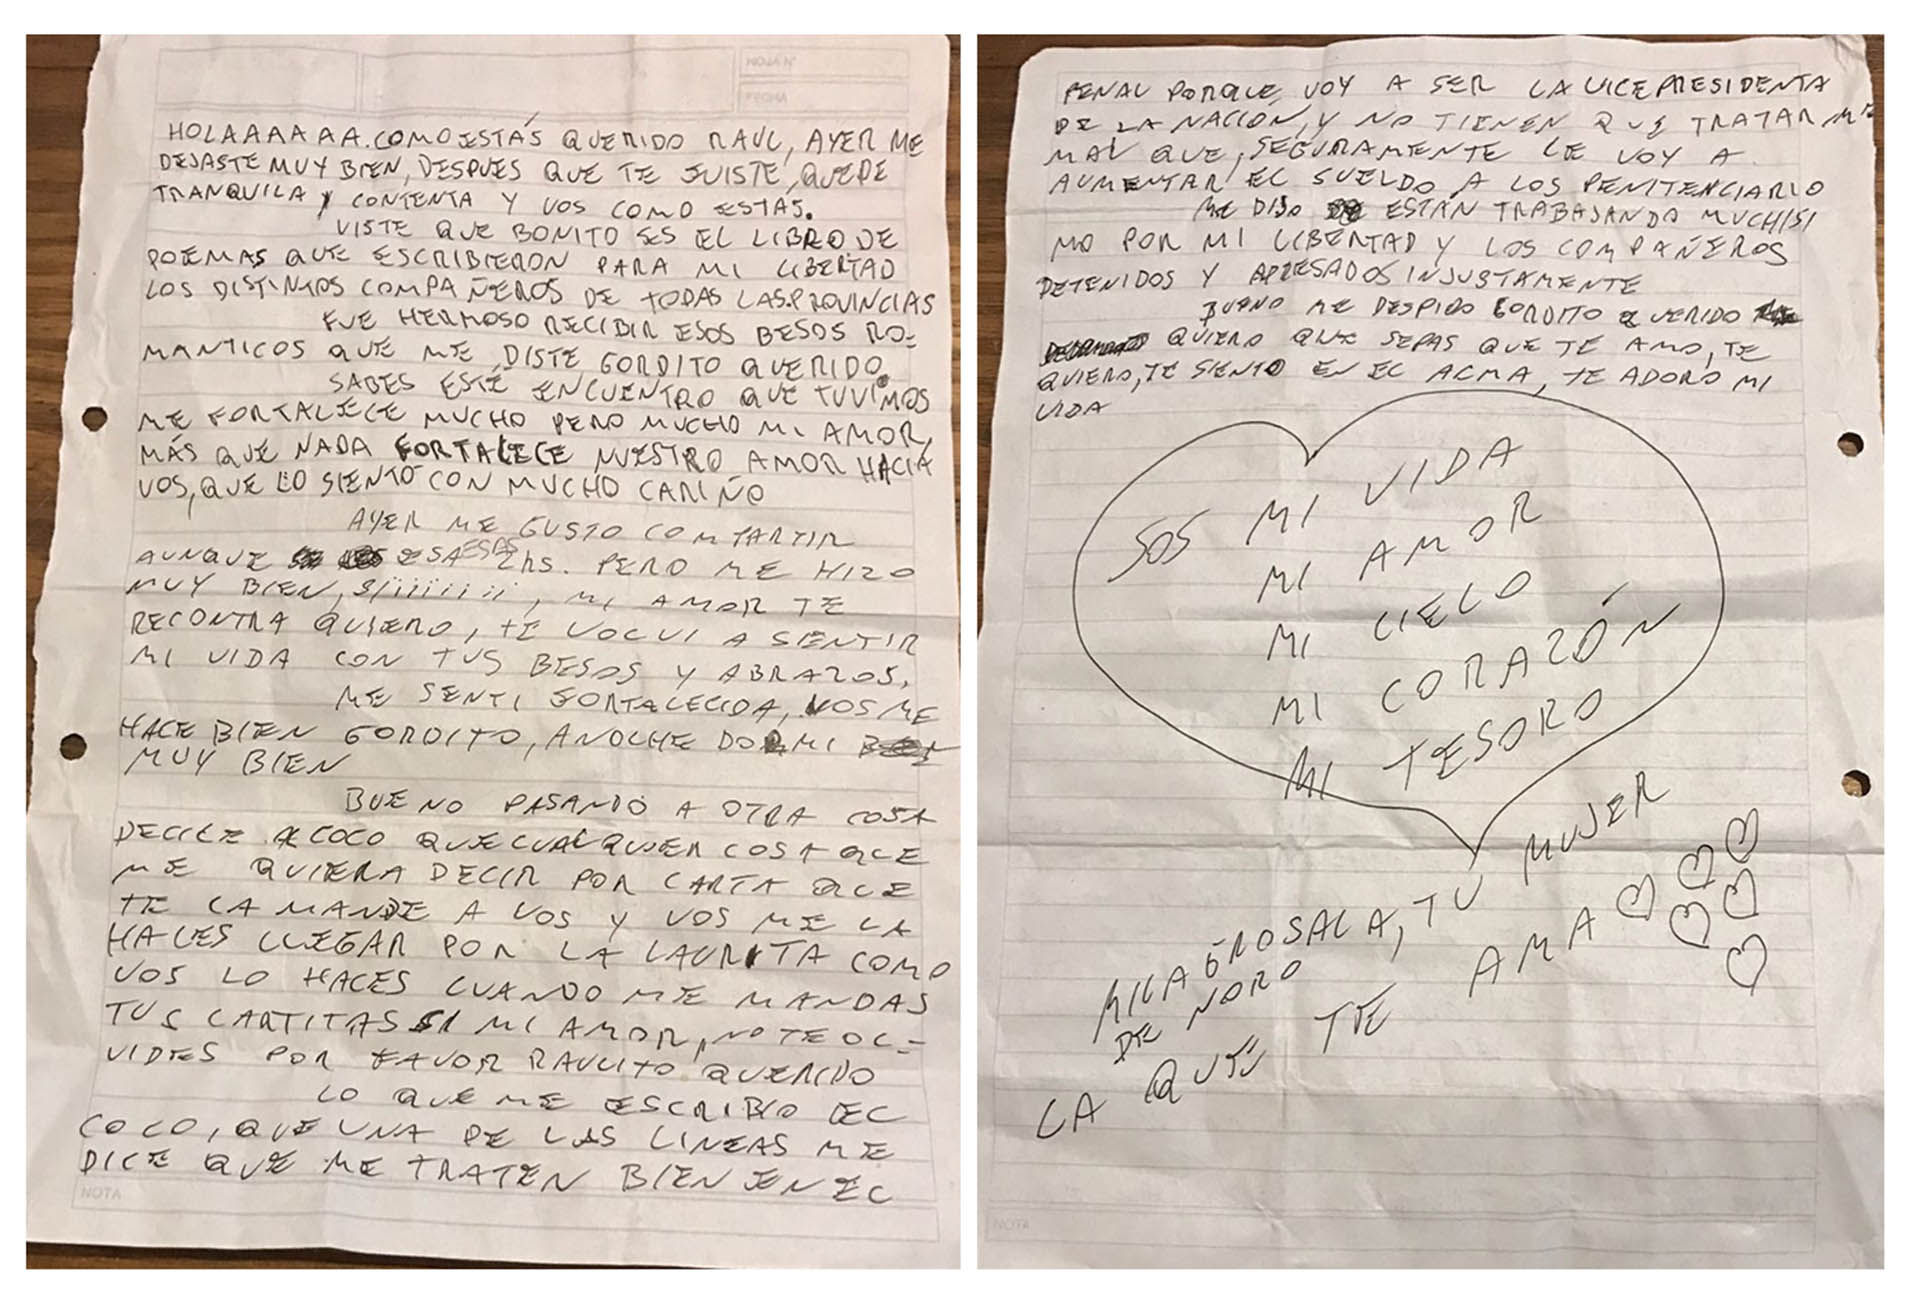 HOLAAAAAA. COMO ESTÁS QUERIDO RAUL, AYER ME
DEJASTE MUY BIEN, DESPUES QUE TE FUISTE, QUEDE
TRANQUILA Y CONTENTA Y VOS COMO ESTAS.
VISTE QUE BONITO ES EL LIBRO DE
POEMAS QUE ESCRIBIERON PARA MI LIBERTAD
LOS DISTINTOS COMPAÑEROS DE TODAS LAS PROVINCIAS
FUE HERMOSO RECIBIR ESOS BESOS RO-
MANTICOS QUE ME DISTE GORDITO QUERIDO.
SABES ESTÉ ENCUENTRO QUE TUVIMOS
ME FORTALECE MUCHO PERO MUCHO MI AMOR,
MÁS QUE NADA FORTALECE NUESTRO AMOR HACIA
VOS, QUE LO SIENTO CON MUCHO CARIÑO
AYER ME GUSTO COMPARTIR
AUNQUE ESA ESAS 2hs. PERO ME HIZO
MUY BIEN, SIiiiiiii, MI AMOR TE
RECONTRA QUIERO, TE VOLVI A SENTIR
MI VIDA CON TUS BESOS Y ABRAZOS.
ME SENTI FORTALECIDA, VOS ME
HACE BIEN GORDITO, ANOCHE DORMI
MUY BIEN
BUENO PASANDO A OTRA COSA
DECILE A COCO QUE CUALQUIER COSA QUE
ME QUIERA DECIR POR CARTA QUE
TE LA MANDE A VOS Y VOS ME LA
HACES LLEGAR POR LA LAURITA COMO
VOS LO HACES CUANDO ME MANDAS
TUS CARTITAS SI MI AMOR, NO TE OL-
VIDES POR FAVOR RAULITO QUERIDO
LO QUE ME ESCRIBIO EL
COCO, QUE UNA DE LAS LINEAS ME
DICE QUE ME TRATEN BIEN EN EL
NOTA
PENAL PORQUE, VOY A SER LA VICEPRESIDENTA
DE LA NACIÓN, Y NO TIENEN QUE TRATAR ME
MAL QUE, SEGURAMENTE LE VOY A
AUMENTAR EL SUELDO A LOS PENITENCIARIO
ME DIJO ESTÁN TRABAJANDO MUCHISI
MO POR MI LIBERTAD Y LOS COMPAÑEROS
DETENIDOS Y APRESADOS INJUSTAMENTE
BUENO ME DESPIDO GORDITO QUERIDO
QUIERO QUE SEPAS QUE TE AMO, TE
QUIERO, TE SIENTO EN EL ALMA, TE ADORO MI
VIDA
SOS MI VIDA
MI AMOR
MI CIELO
MI CORAZÓN
MI TESORO
MILAGROSALA, TU MUJER
DE NORO
LA QUE TE AMA
NOTA